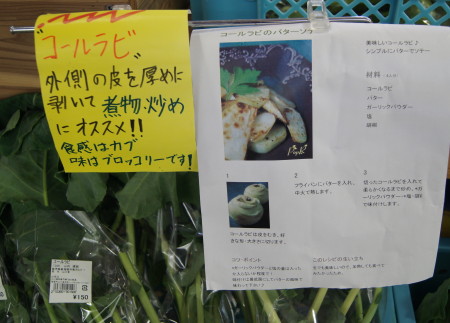 "コールラビ"
外側の皮を厚めに
剥いて煮物・炒め
にオススメ!!
食感はカブ
味はブロッコリーです!
コールラビのバターソテー
美味しいコールラビ♪
シンプルにバターでソテー
材料
コールラビ
バター
ガーリックパウダー
塩
胡椒
1
コールラビは皮をむき、好
きな形・大きさに切ります。
2
フライパンにバターを入れ、
中火で熱します。
3
切ったコールラビを入れて
柔らかくなるまで炒め、*ガ
ーリックパウダー・*塩・胡椒
で味付けします。
コツ・ポイント
このレシピの生い立ち
コールラビ
¥150